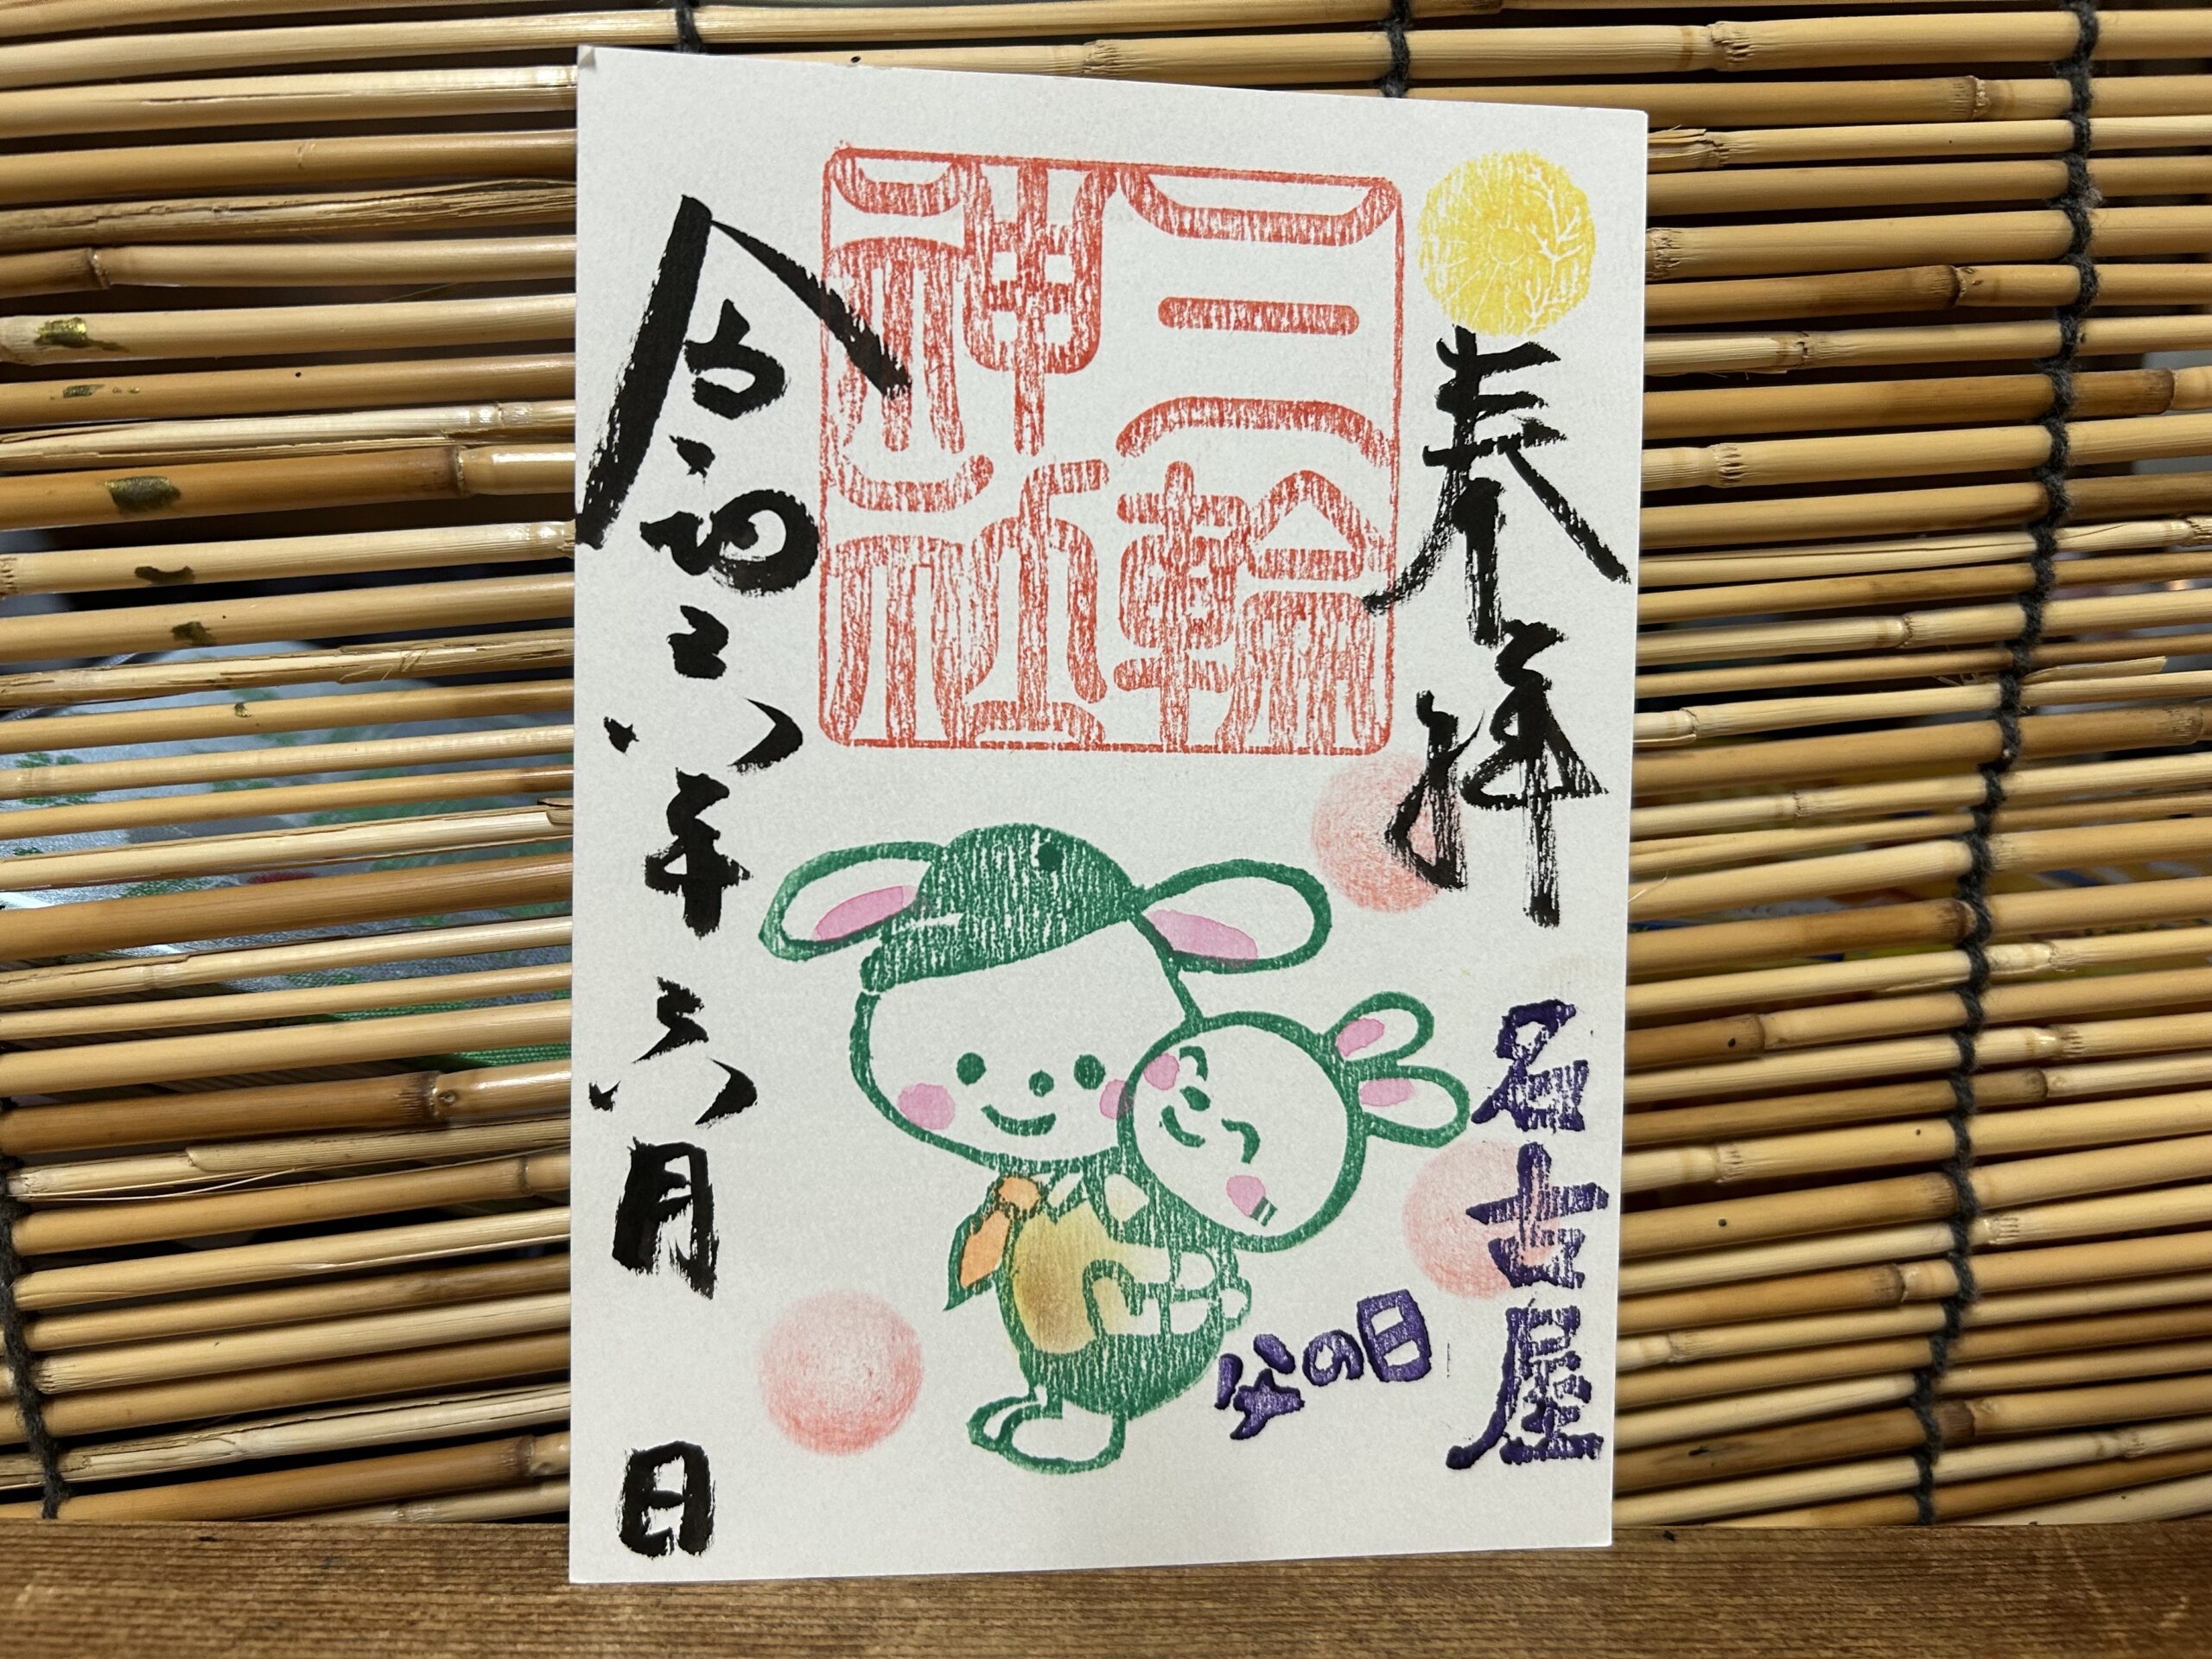 奉拝
名古屋
三輪
神社
父の日
令和六年六月 日